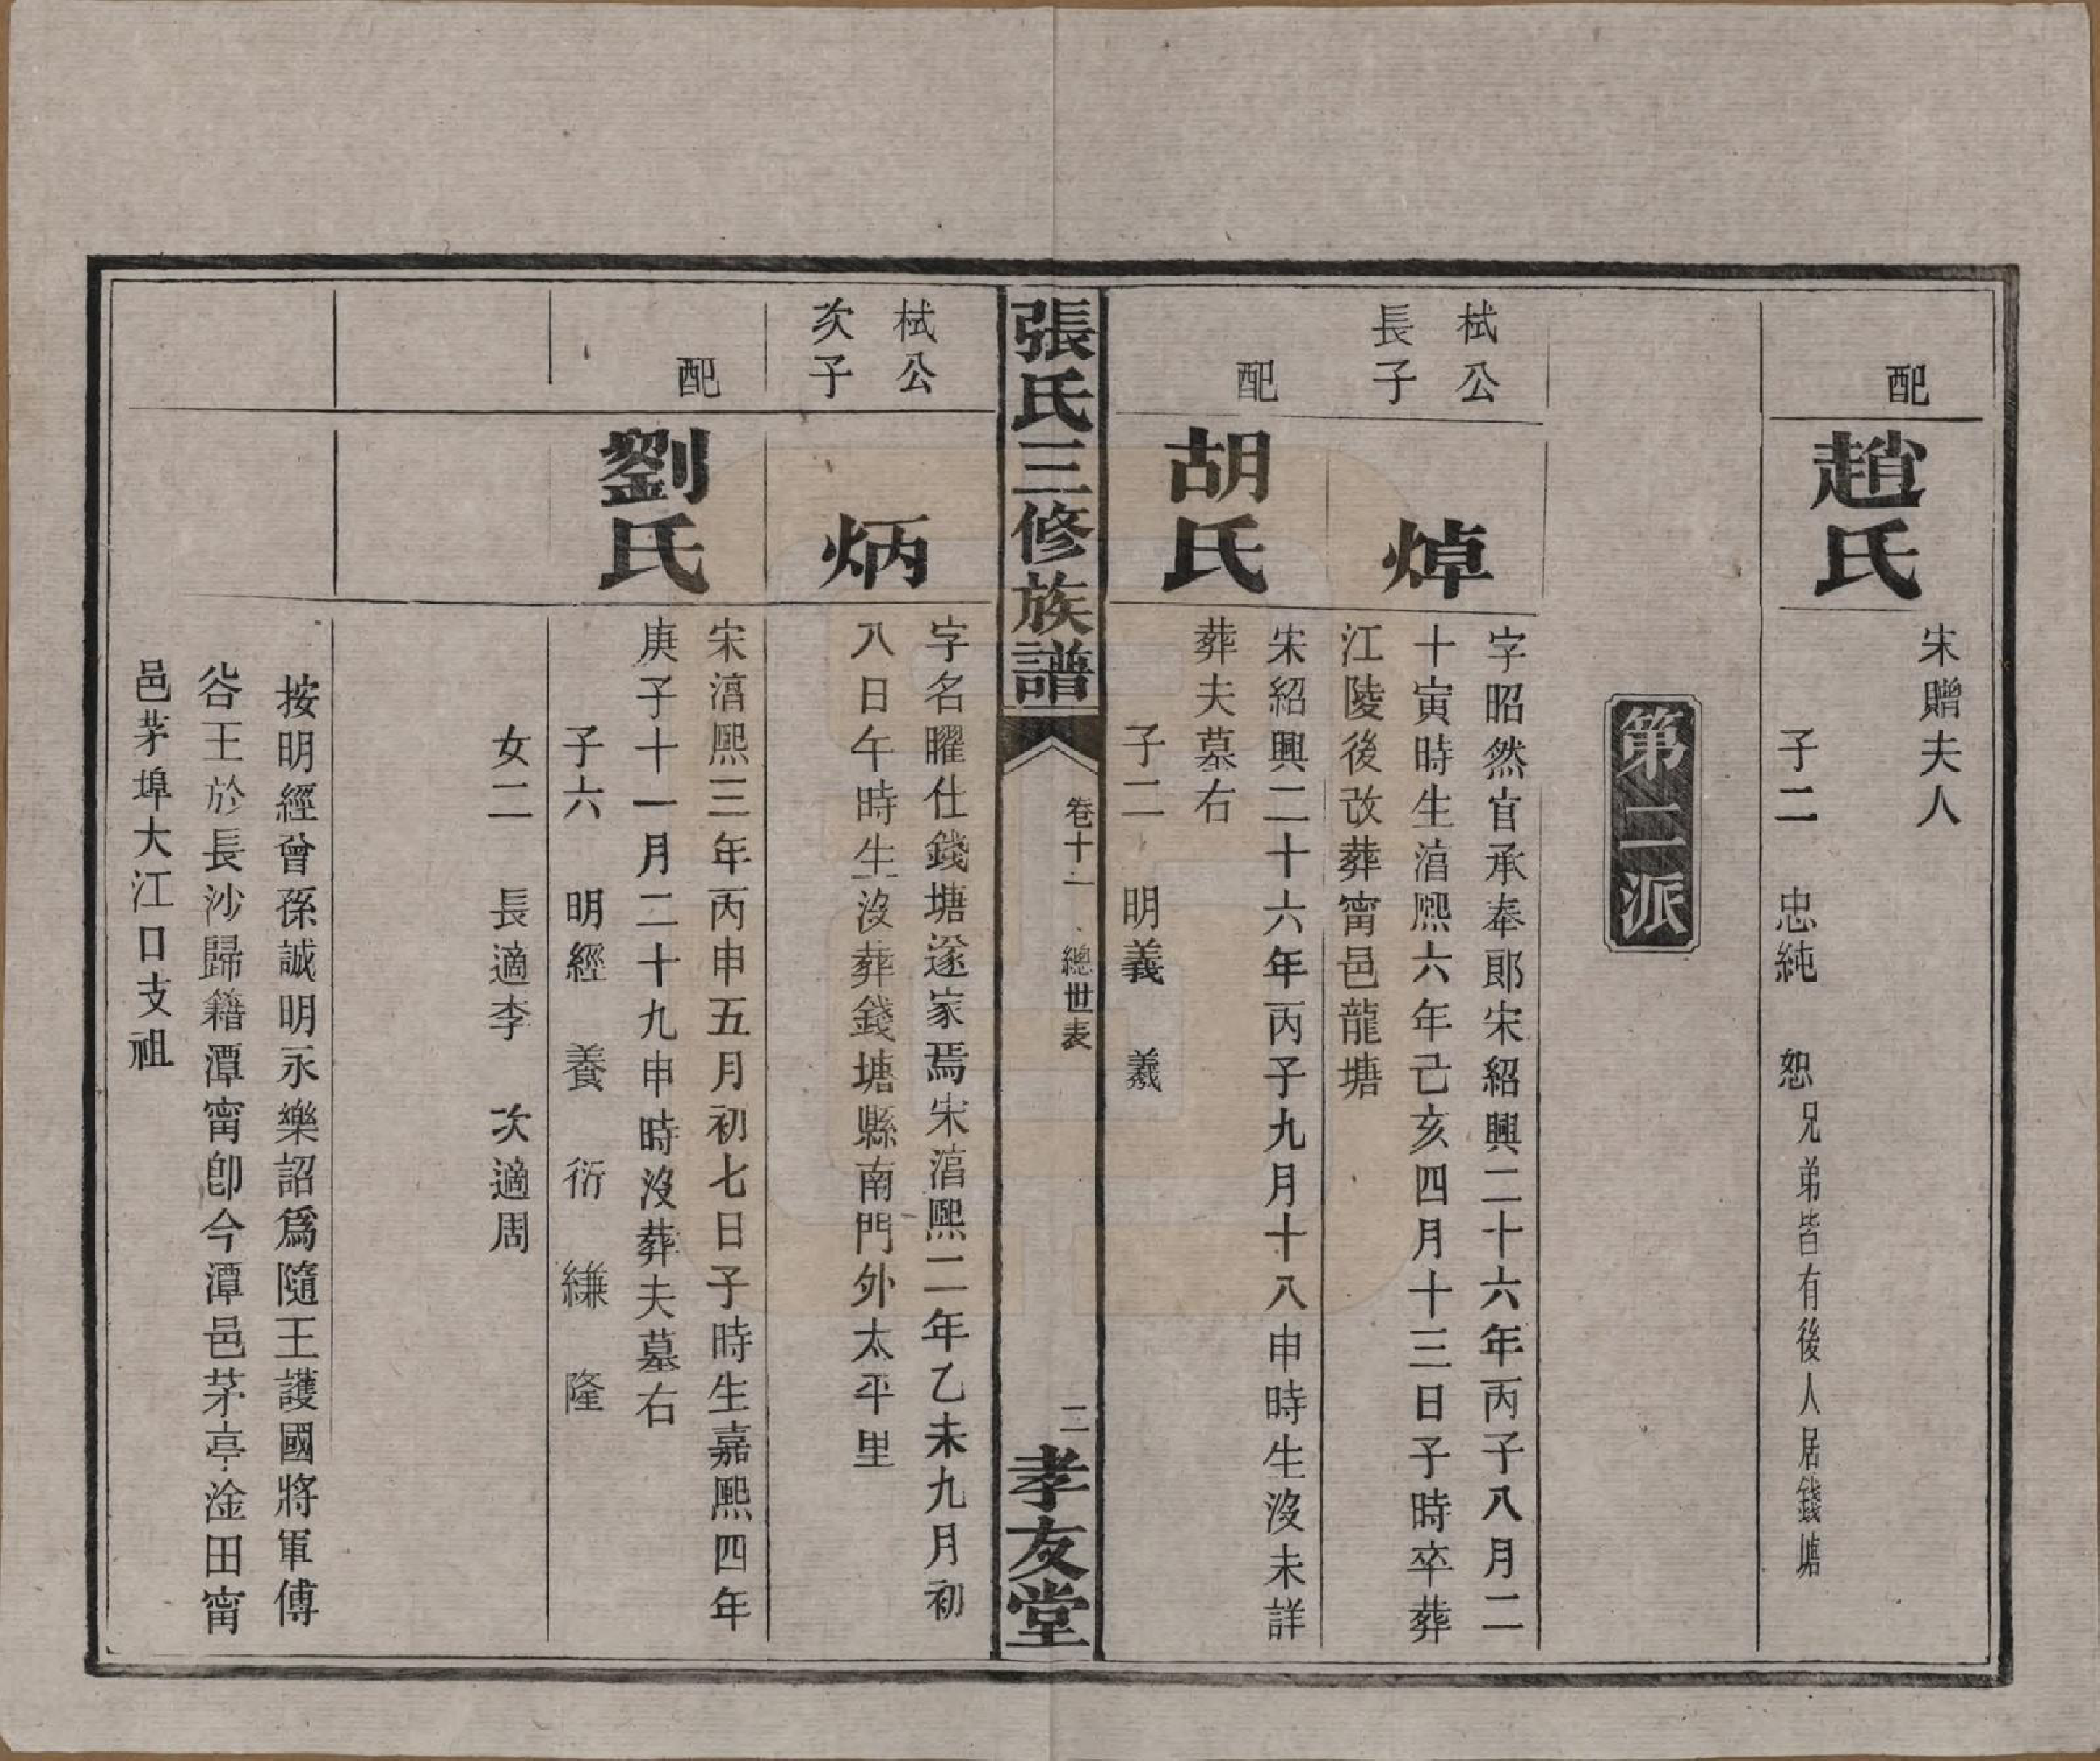 配
趙氏
宋贈夫人
子二　忠純　恕兄弟皆有後人居錢塘
第二派
栻公
長子
焯
字昭然官承奉郎宋紹興二十六年丙子八月二
十寅時生湻熙六年己亥四月十三日子時卒葬
江陵後改葬甯邑龍塘
配
胡氏
宋紹興二十六年丙子九月十八申時生沒未詳
葬夫墓右
子二　明義　羲
張氏三修族譜
卷十一　總世表
二
孝友堂
栻公
次子
炳
字名曜仕錢塘遂家焉宋湻熙二年乙未九月初
八日午時生沒葬錢塘縣南門外太平里
配
劉氏
宋湻熙三年丙申五月初七日子時生嘉熙四年
庚子十一月二十九申時沒葬夫墓右
子六　明經　養　衍　縑　隆
女二　長適李　次適周
按明經曾孫誠明永樂詔爲隨王護國將軍傅
谷王於長沙歸籍潭甯卽今潭邑茅亭淦田甯
邑茅埠大江口支祖